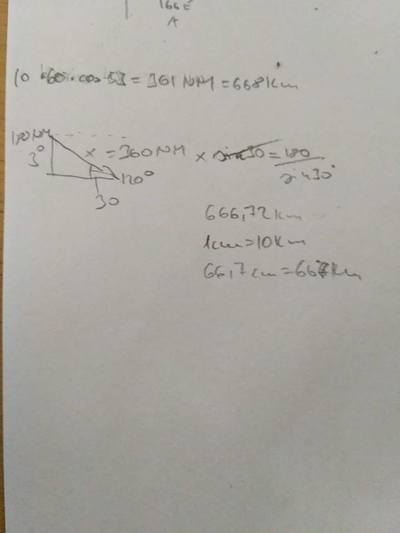 166E
A
10 · 60 · cos 53 = 361 NM = 668 km
180 NM
3°
x = 360 NM
120°
30
x sin 30 = 180
sin 30°
666,72 km
1cm = 10 km
66,7 cm = 667 km